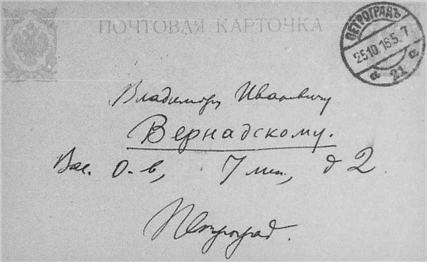 ПОЧТОВАЯ КАРТОЧКА
ПЕТРОГРАДЪ
25.10.16.5.7
а 21 а
Владимиру Ивановичу
Вернадскому.
Вас. О-в, 7 лин., д 2
Петроград.